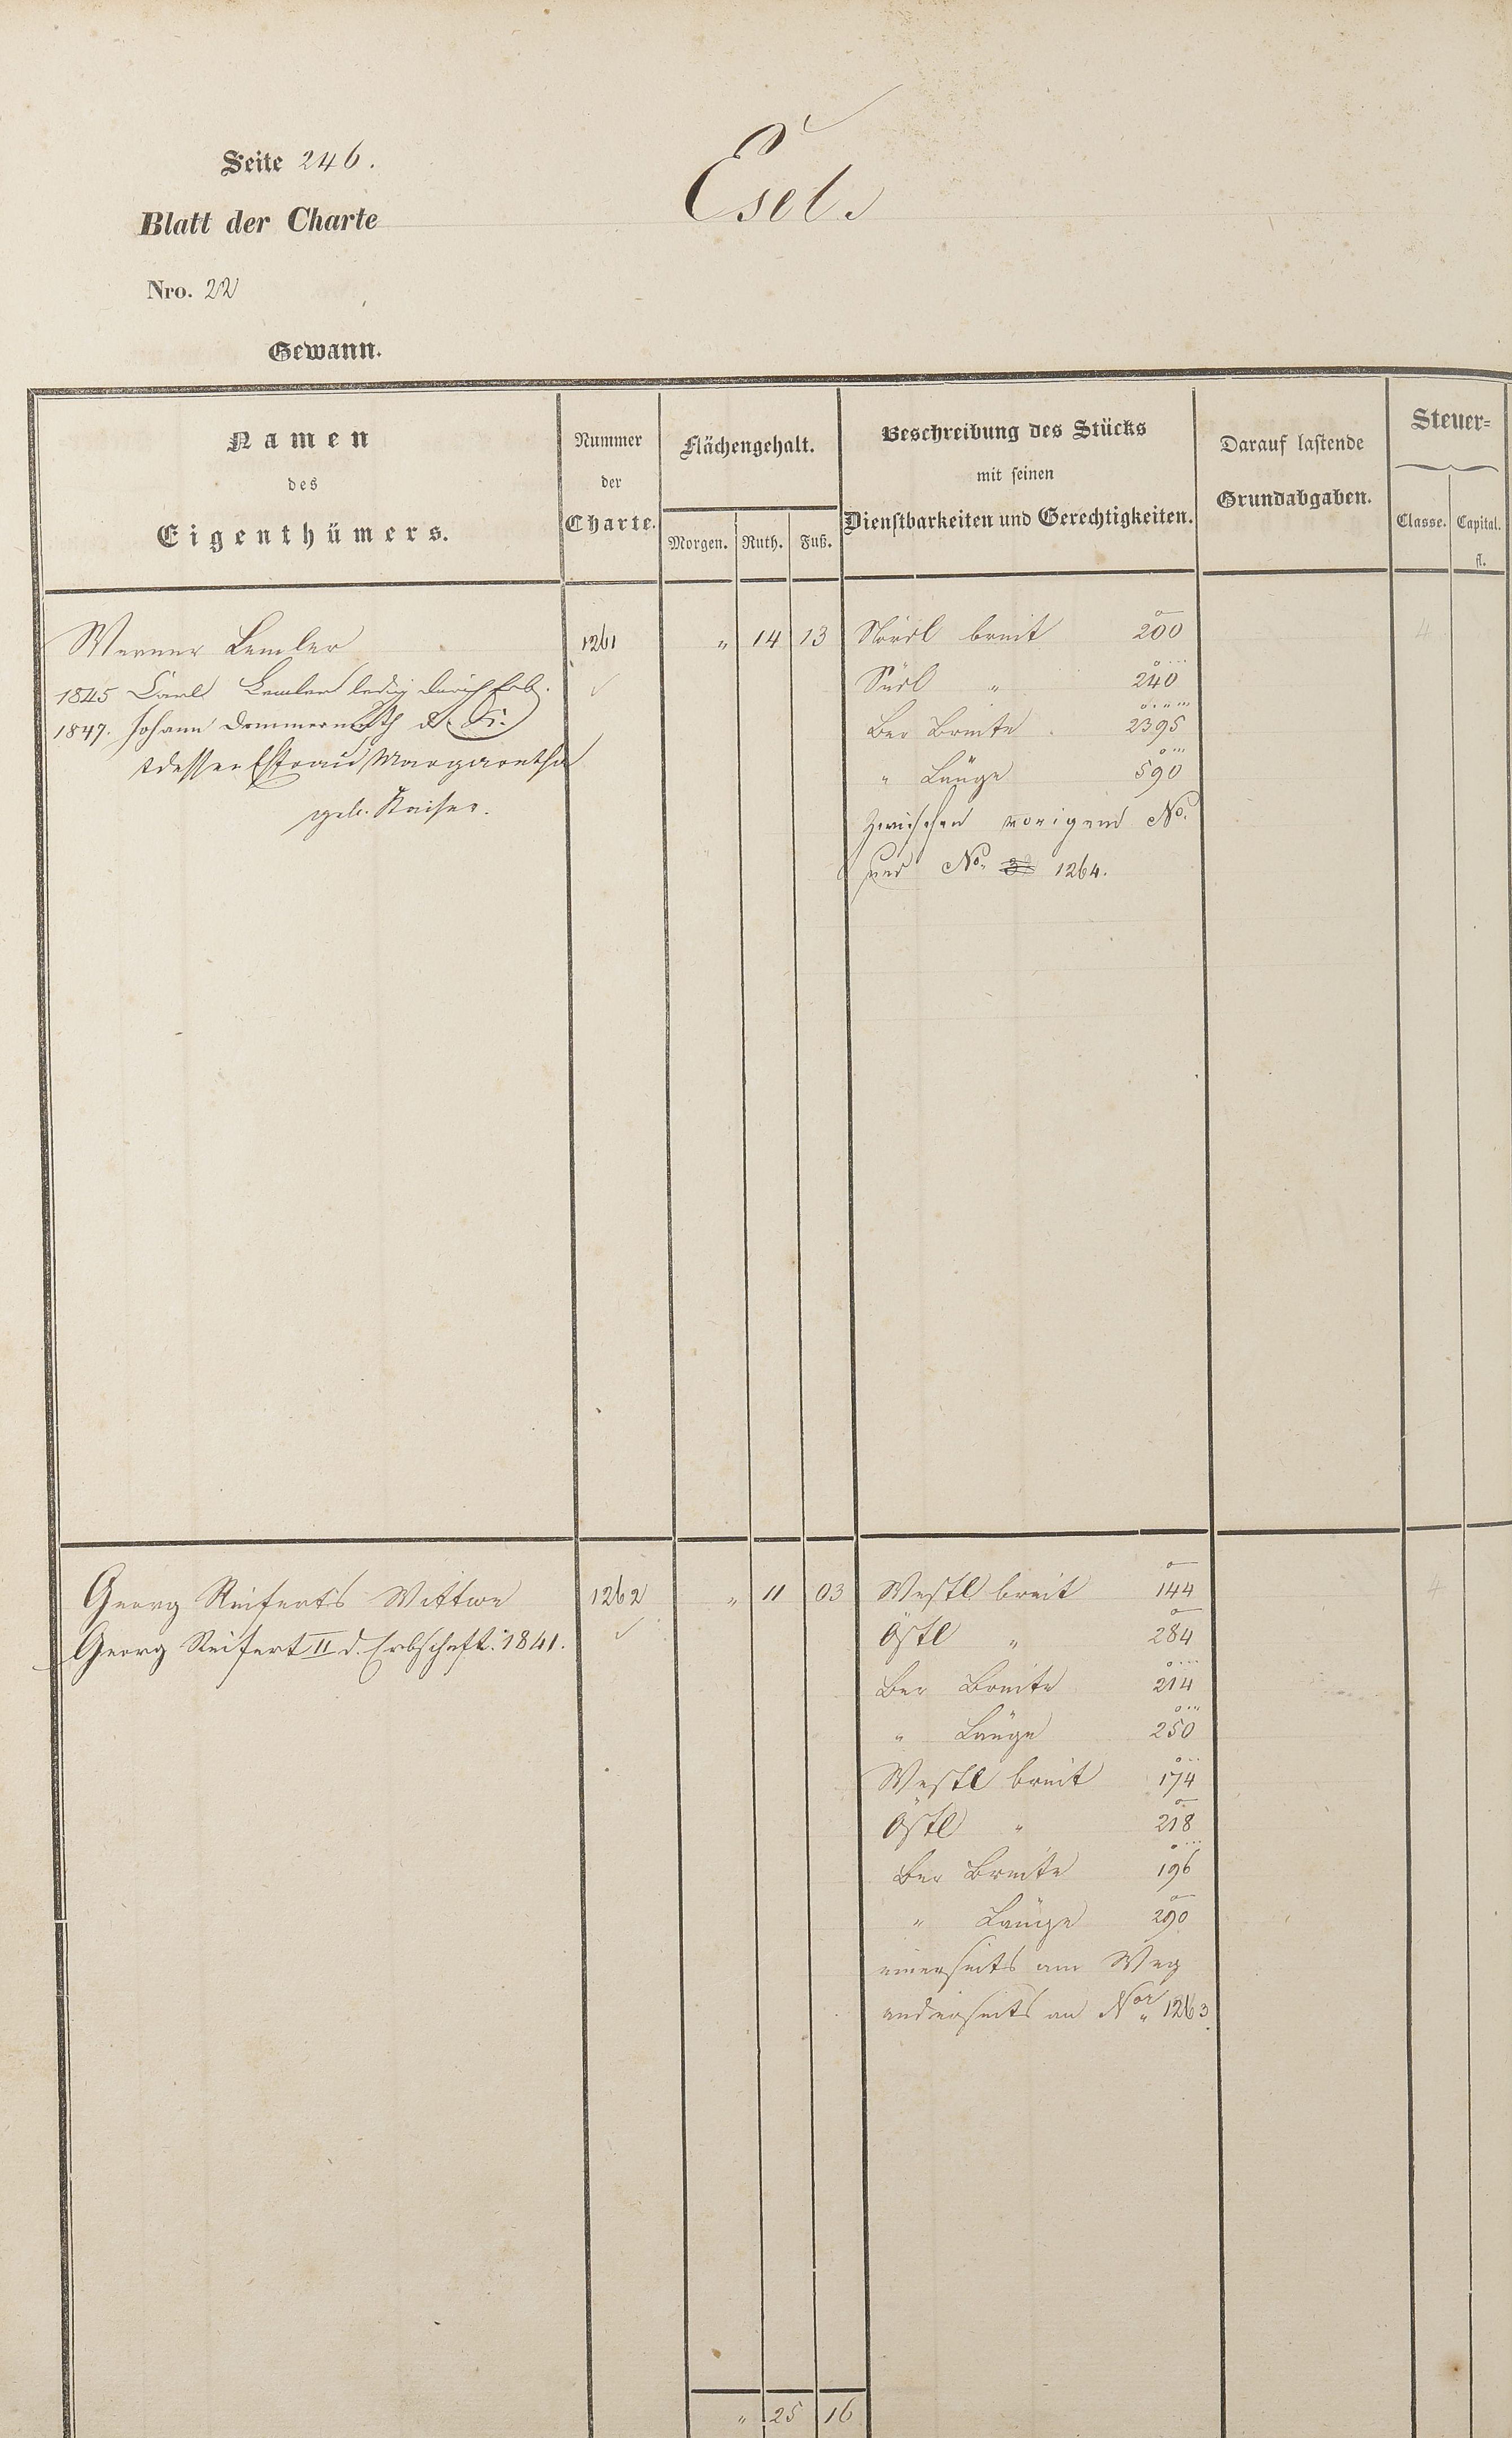 Seite 246.
Esel.
Blatt der Charte
Nro. 22
Gewann.
Namen
des
Eigenthümers.
Nummer
der
Charte.
Flächengehalt.
Morgen. Ruth. Fuß.
Beschreibung des Stücks
mit seinen
Dienstbarkeiten und Gerechtigkeiten.
Darauf lastende
Grundabgaben.
Steuer-
Classe. Capital.
fl.
Werner Lemler 1261 " 14 13 Nördl breit 200 4
1845 Carl Lemler ledig durch Erb. Südl " 240
1847. Johann Dommermuth Ber Breite 2395
dessen Ehefrau Margaretha " Länge 590
geb. Kaiser. Zwischen vorigem No.
und No. 1264.
Georg Reiferts Wittwe 1262 " 11 03 Westl breit 144 4
Georg Reifert II d. Erbschaft. 1841. Östl " 284
Ber Breite 214
" Länge 250
Westl breit 174
Östl " 218
Ber Breite 196
" Länge 290
einerseits am Weg
anderseits an Nor 1263.
" 25 16